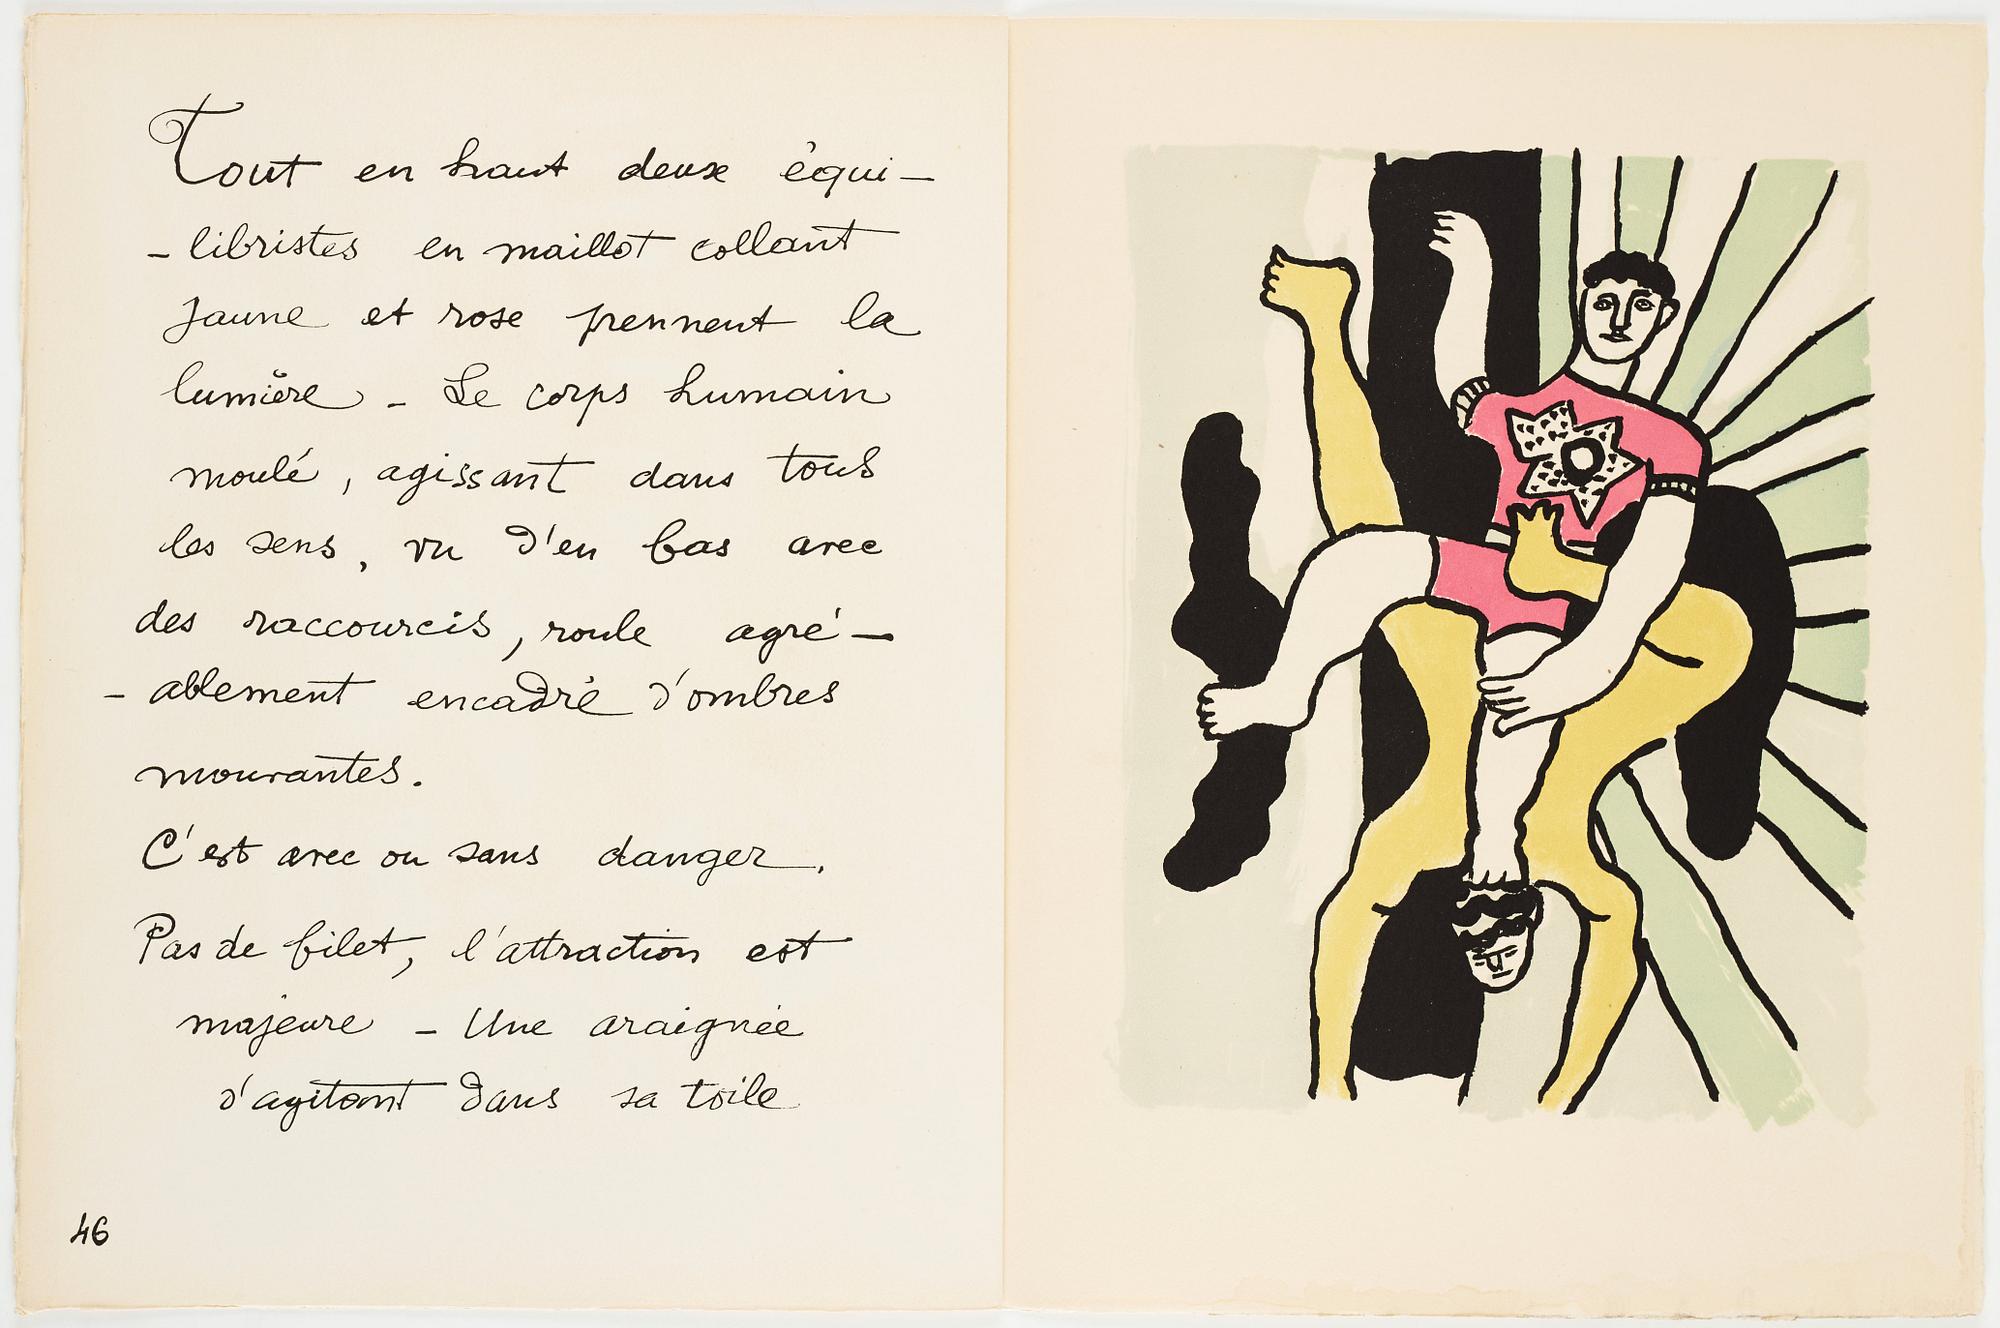 Tout en haut deux équi–
– libristes en maillot collant
jaune et rose prennent la
lumière – Le corps humain
moulé, agissant dans tous
les sens, vu d'en bas avec
des raccourcis, roule agré –
– ablement encadré d'ombres
mourantes.
C'est avec ou sans danger.
Pas de filet, l'attraction est
majeure – Une araignée
s'agitant dans sa toile
46